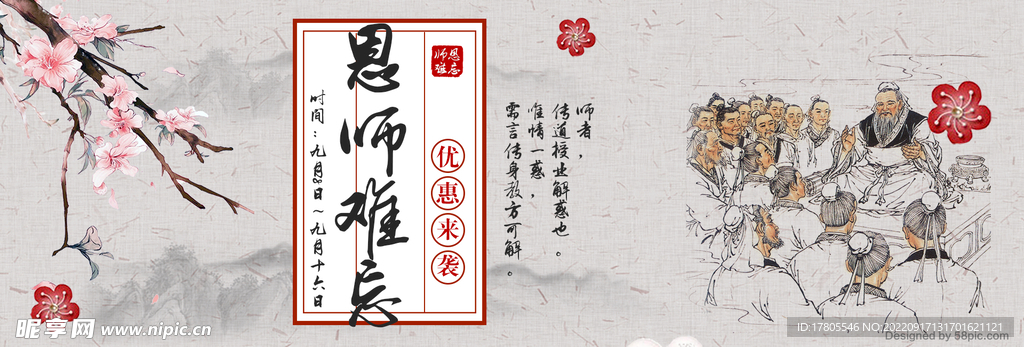 恩师难忘
师恩难忘
优惠来袭
时间：九月8日～九月十六日
师者，
传道授业解惑也。
惟情一惑，
需言传身教方可解。
昵享网 www.nipic.cn
ID:17805546 NO:20220917131701621121
Designed by 58pic.com